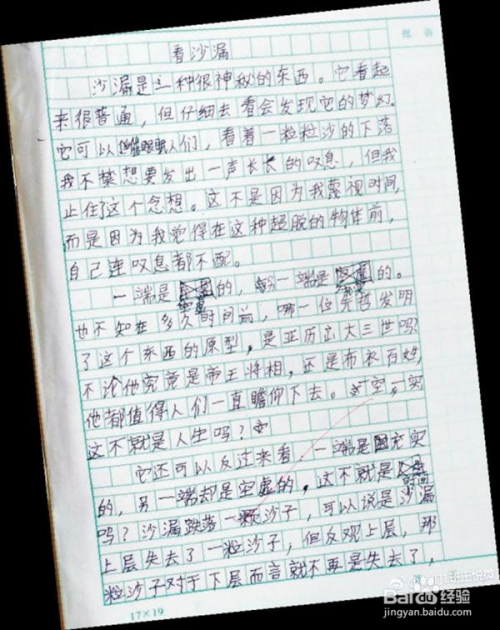 批语
看沙漏
沙漏是一种很神秘的东西。它看起
来很普通，但仔细去看会发现它的梦幻。
它可以催眠人们，看着一粒粒沙的下落
我不禁想要发出一声长长的叹息，但我
止住了这个念想。这不是因为我蔑视时间，
而是因为我觉得在这种超脱的物体前，
自己连叹息都不配。
一端是的，另一端是的。
也不知在多久时间前，哪一位先哲发明
了这个东西的原型，是亚历山大三世吗？
不论他究竟是帝王将相，还是布衣百姓
他都值得人们一直瞻仰下去。一空，一实
这不就是人生吗？
它还可以反过来看，一端是充实
的，另一端却是空虚的，这不就是
吗？沙漏跌落一颗沙子，可以说是沙漏
上层失去了一粒沙子，但反观上层，那
粒沙子对于下层而言就不再是失去了，
17×19
Baidu经验
jingyan.baidu.com